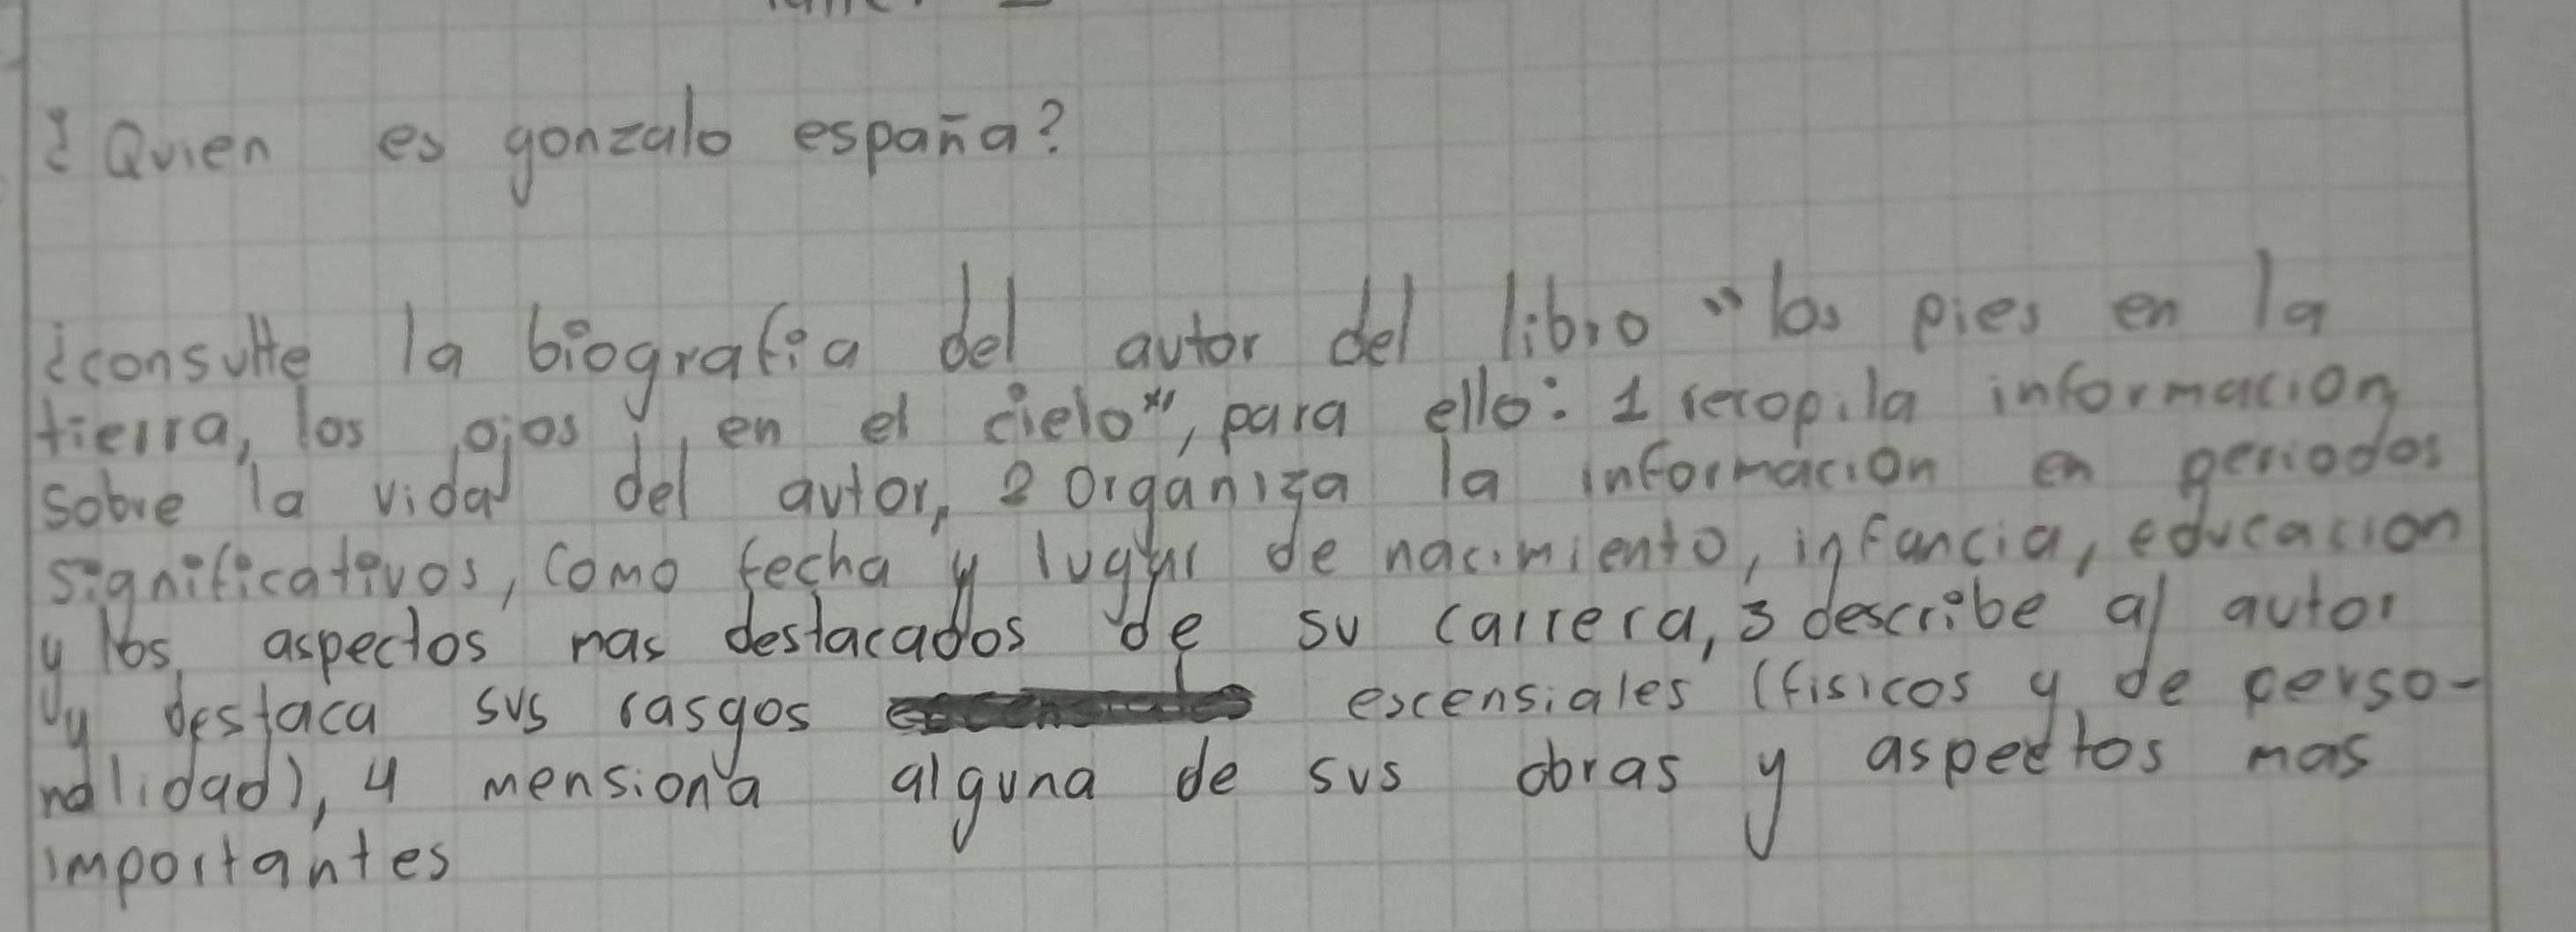 ¿Quien es gonzalo españa?
¿consulte la biografia del autor del libro "los pies en la
tierra, los ojos en el cielo", para ello: 1 recopila informacion
sobre la vida del autor, 2 organiza la informacion en periodos
significativos, como fecha y lugar de nacimiento, infancia, educacion
y los aspectos mas destacados de su carrera, 3 describe al autor
y destaca sus rasgos escensiales (fisicos y de perso-
nalidad), 4 mensiona alguna de sus obras y aspectos mas
importantes